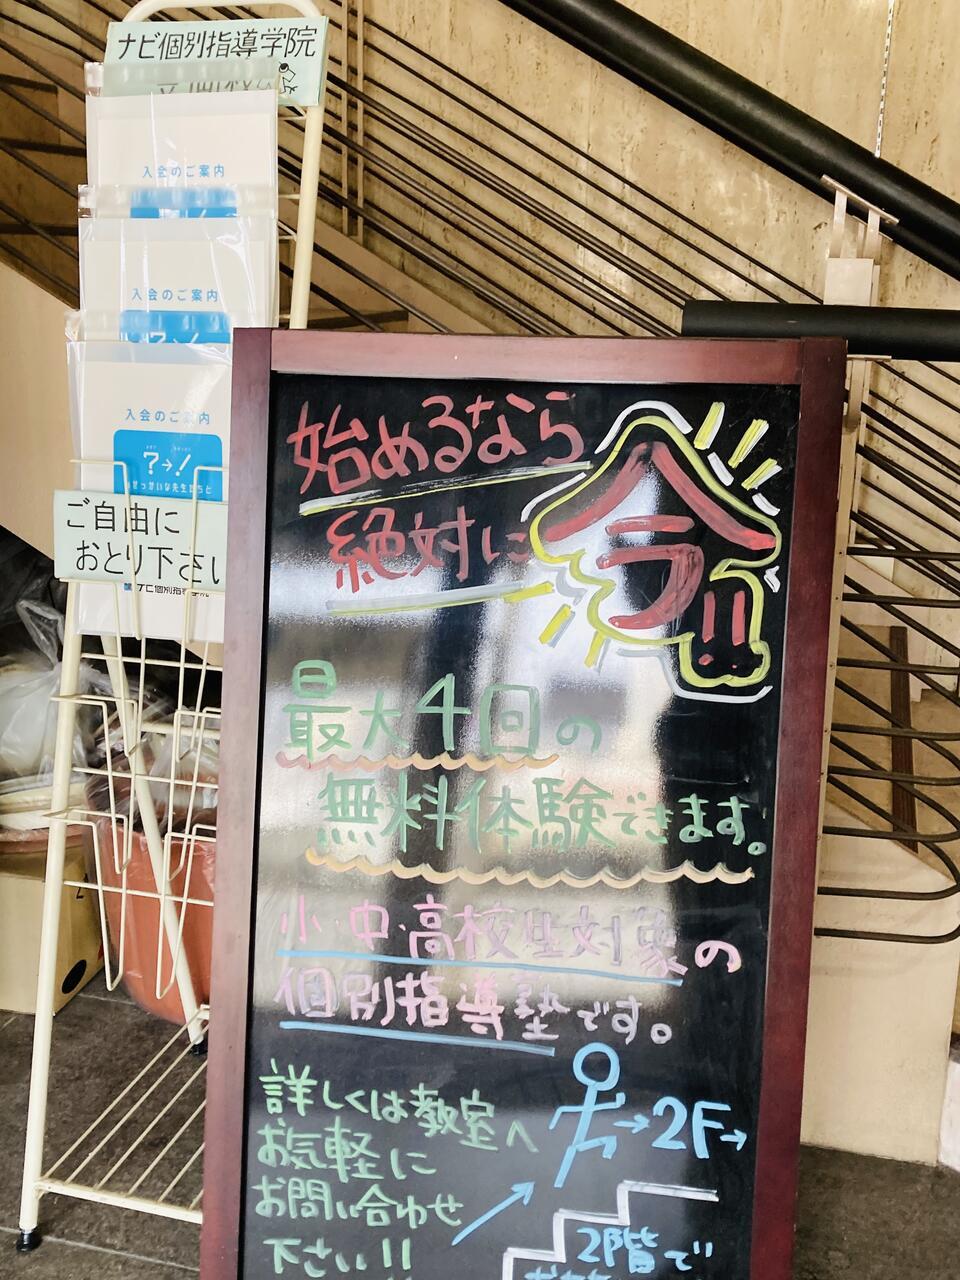 ナビ個別指導学院
入会のご案内
入会のご案内
入会のご案内
?→!
ご自由に
おとり下さい
ナビ個別指導学院
始めるなら
絶対に
今!!
最大4回の
無料体験できます。
小・中・高校生対象の
個別指導塾です。
詳しくは教室へ
お気軽に
お問い合わせ
下さい!!
→2F→
2階で